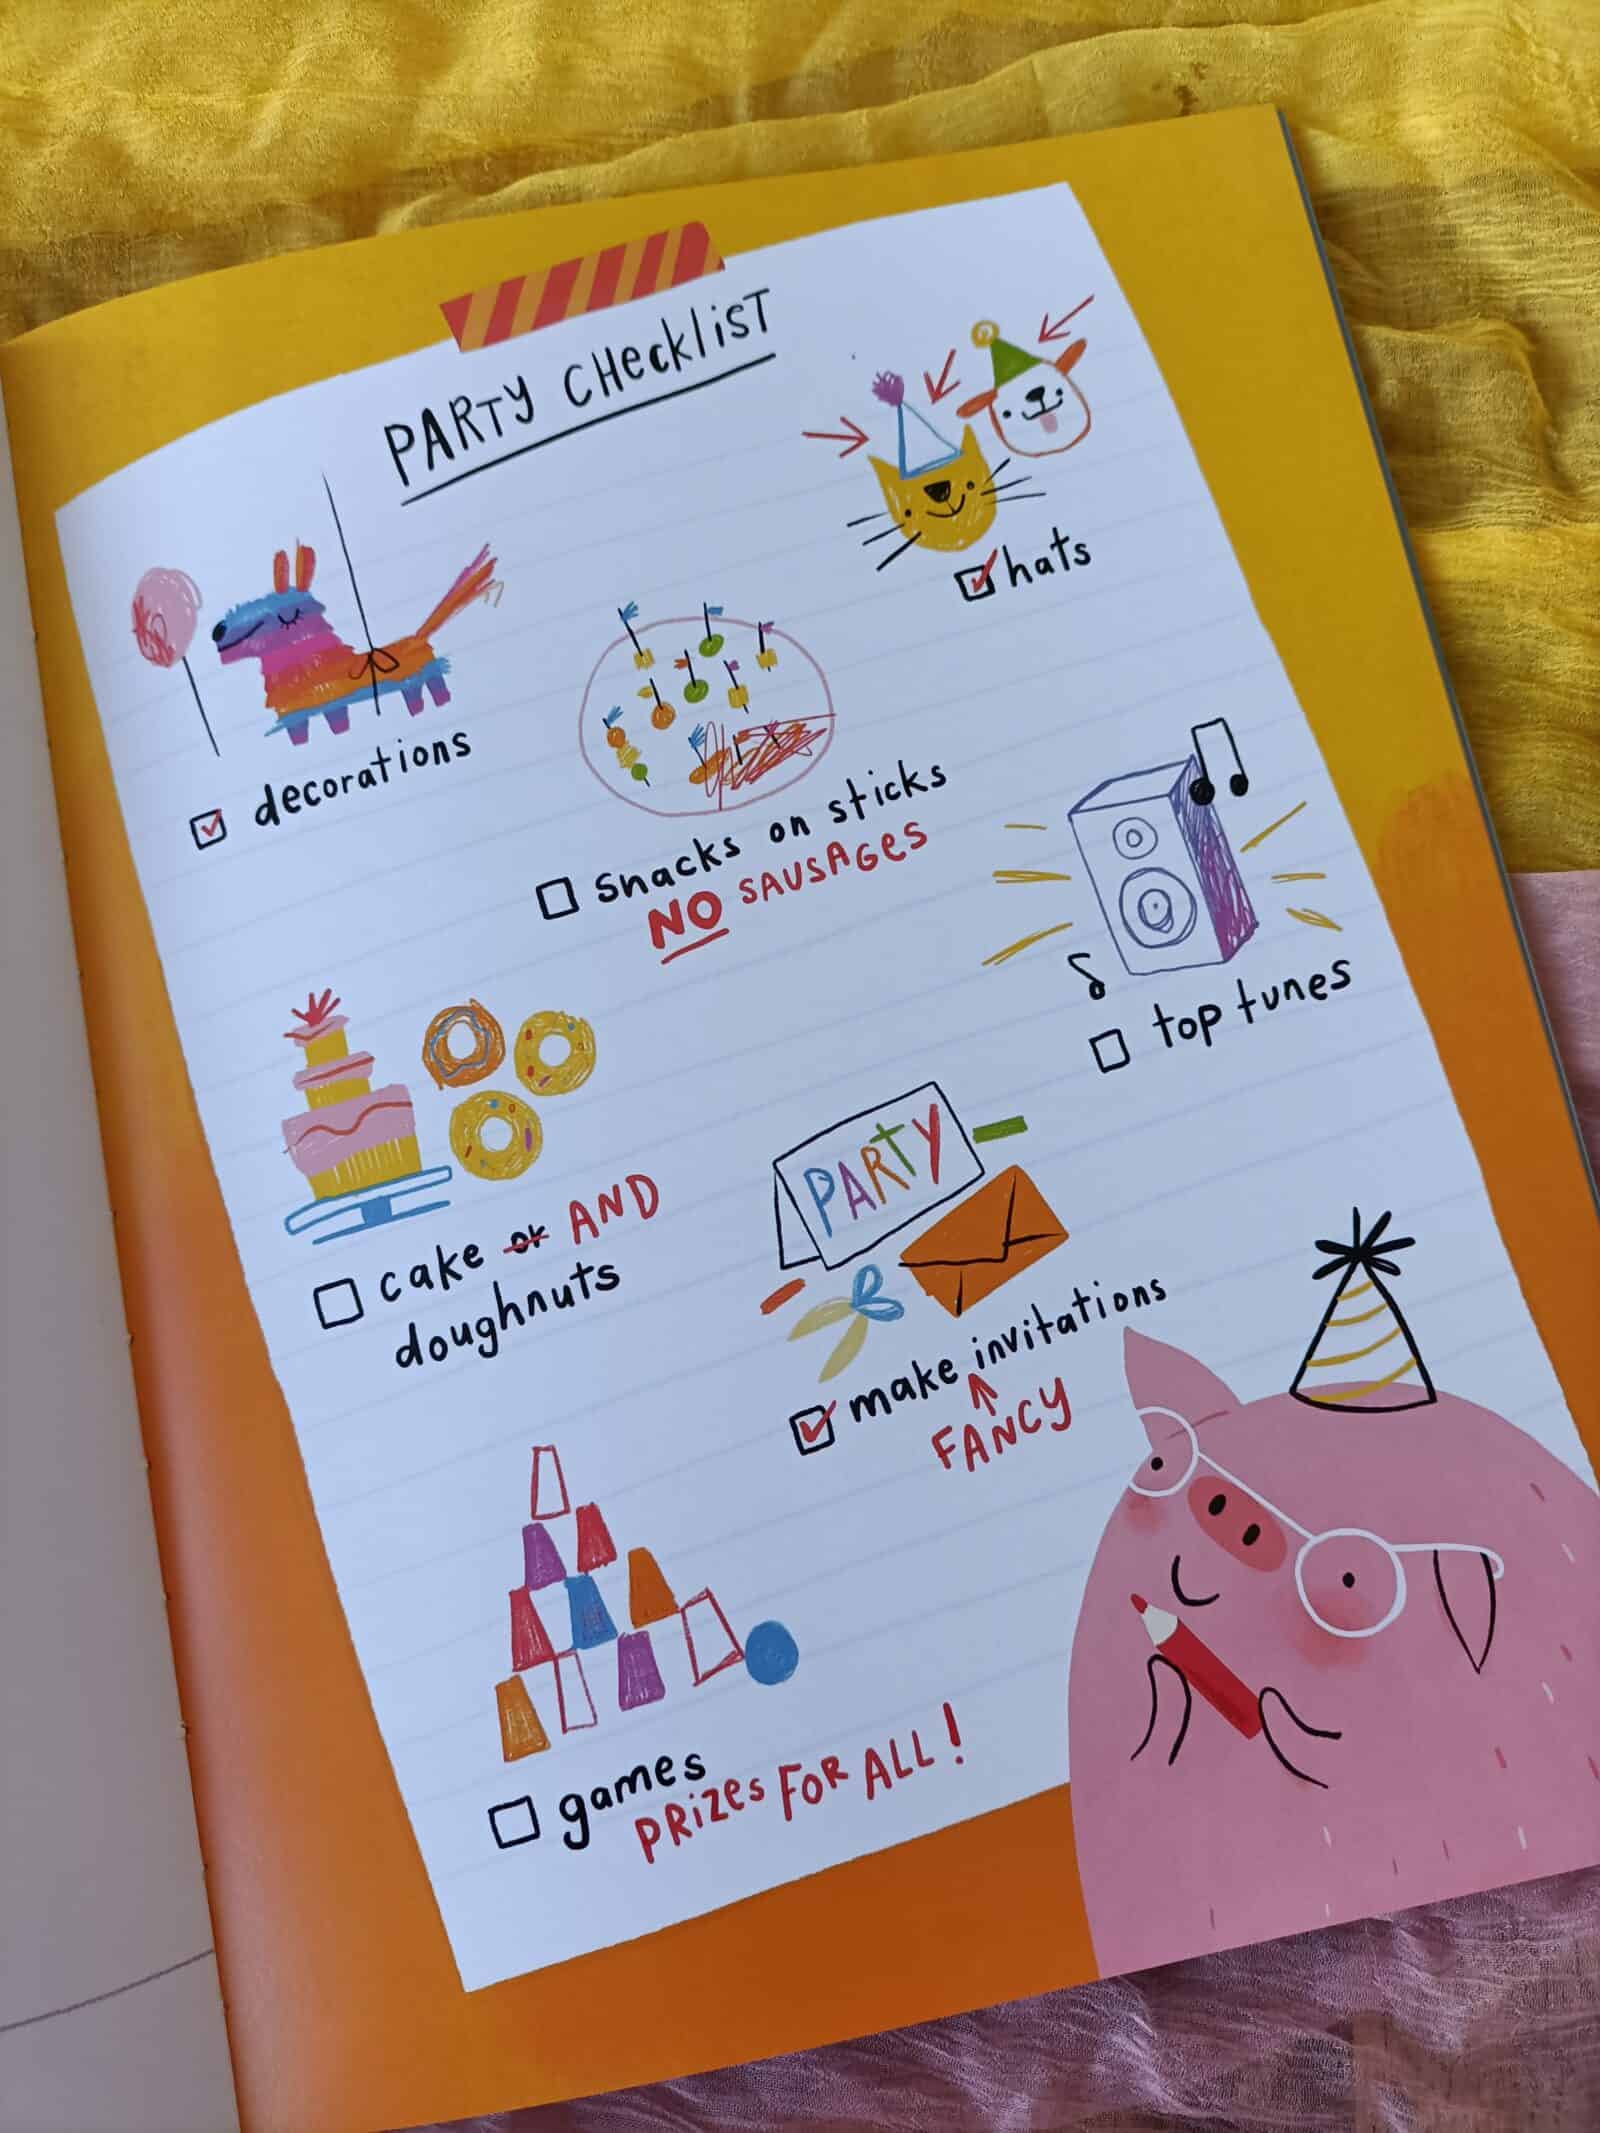 PARTY CHecklisT
hats
decorations
snacks on sticks
NO SAUSAGes
top tunes
cake or AND
doughnuts
PARTY
make invitations
FANCY
games
PRizes FOR ALL!